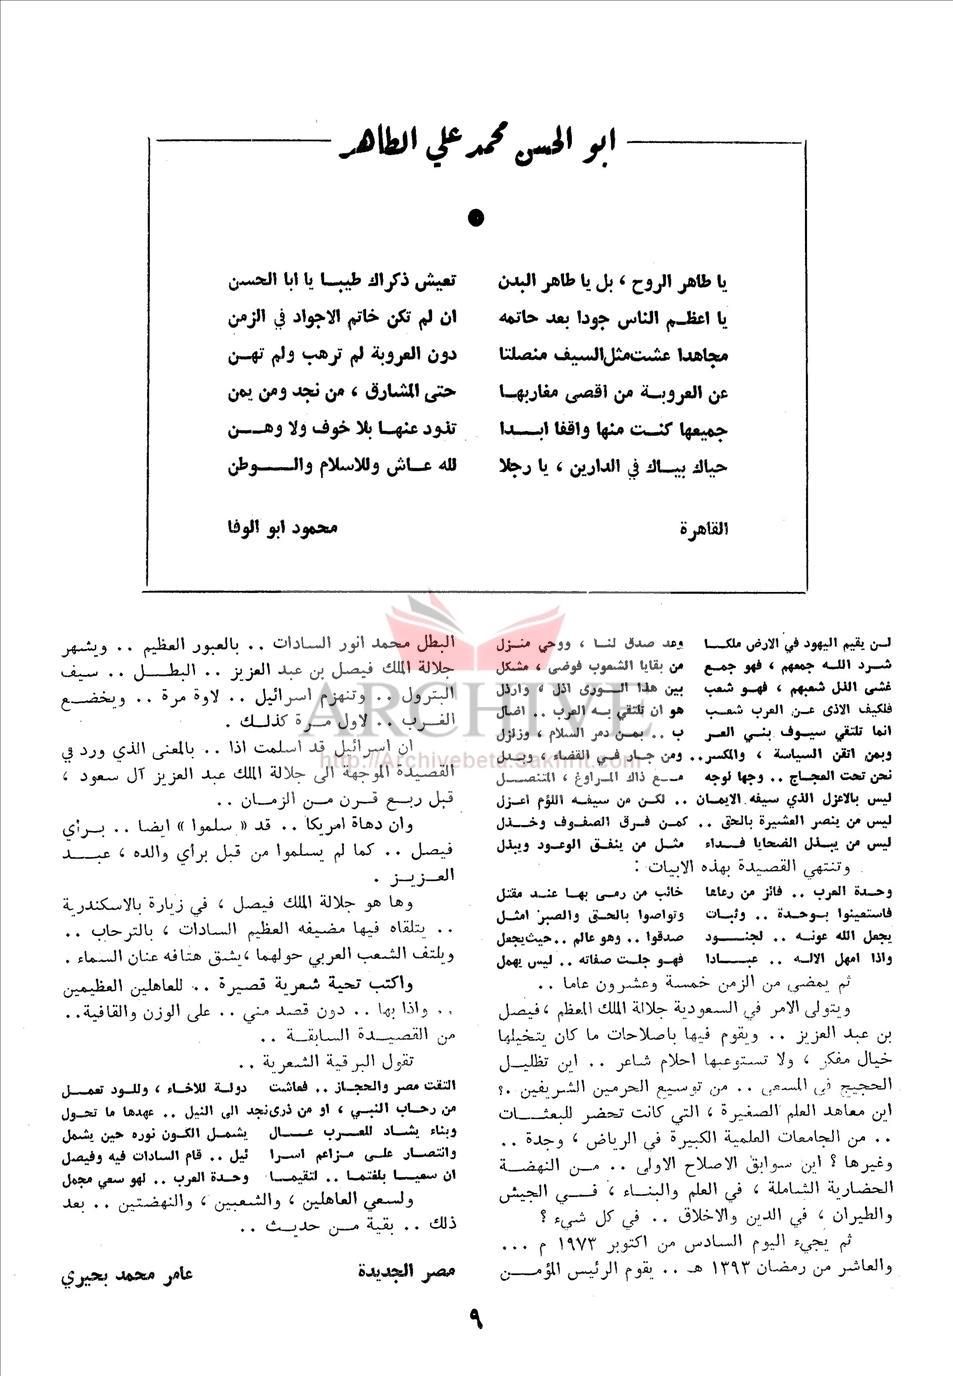 ابو الحسن محمد علي الطاهر
يا طاهر الروح ، بل يا طاهر البدن تعيش ذكراك طيبا يا ابا الحسن
يا اعظم الناس جودا بعد حاتمه ان لم تكن خاتم الاجواد في الزمن
مجاهدا عشت مثل السيف منصلتا دون العروبة لم ترهب ولم تهن
عن العروبة من اقصى مغاربها حتى المشارق ، من نجد ومن يمن
جميعها كنت منها واقفا ابدا تذود عنها بلا خوف ولا وهن
حياك بياك في الدارين ، يا رجلا لله عاش وللاسلام والوطن
القاهرة محمود ابو الوفا
لن يقيم اليهود في الارض ملكا وعد صدق لنا ، ووحي منزل
شرد الله جمعهم ، فهو جمع من بقايا الشعوب فوضى ، مشكل
غشى الذل شعبهم ، فهو شعب بين هذا الورى اذل ، وارذل
فلكيف الاذى عن العرب شعب هو ان تلتقي به العرب .. اضال
انما تلتقي سيوف بني العر ب .. بمن دمر السلام ، وزلزل
وبمن اتقن السياسة ، والمكسر .. ومن جار في القضاء ، وبدل
نحن تحت العجاج .. وجها لوجه مع ذاك المراوغ ، المتنصل
ليس بالاعزل الذي سيفه الايمان .. لكن من سيفه اللؤم اعزل
ليس من ينصر العشيرة بالحق .. كمن فرق الصفوف وخذل
ليس من يبذل الضحايا فداء مثل من ينفق الوعود ويبذل
وتنتهي القصيدة بهذه الابيات :
وحدة العرب .. فائز من رعاها خائب من رمى بها عند مقتل
فاستعينوا بوحدة .. وثبات وتواصوا بالحق والصبر امثل
يجعل الله عونه .. لجنود صدقوا .. وهو عالم .. حيث يجعل
واذا امهل الاله .. عبادا فهو جلت صفاته .. ليس يهمل
ثم يمضي من الزمن خمسة وعشرون عاما ..
ويتولى الامر في السعودية جلالة الملك المعظم ، فيصل
بن عبد العزيز .. ويقوم فيها باصلاحات ما كان يتخيلها
خيال مفكر ، ولا تستوعبها احلام شاعر .. اين تظليل
الحجيج في المسعى .. من توسيع الحرمين الشريفين .؟
اين معاهد العلم الصغيرة ، التي كانت تحضر للبعثات
.. من الجامعات العلمية الكبيرة في الرياض ، وجدة ..
وغيرها ؟ اين سوابق الاصلاح الاولى .. من النهضة
الحضارية الشاملة ، في العلم والبناء ، في الجيش
والطيران ، في الدين والاخلاق .. في كل شيء ؟
ثم يجيء اليوم السادس من اكتوبر ١٩٧٣ م ...
والعاشر من رمضان ١٣٩٣ هـ .. يقوم الرئيس المؤمن
البطل محمد انور السادات .. بالعبور العظيم .. ويشهر
جلالة الملك فيصل بن عبد العزيز .. البطل .. سيف
البترول .. وتنهزم اسرائيل .. لاوة مرة .. ويخضع
الغرب .. لاول مرة كذلك .
ان اسرائيل قد اسلمت اذا .. بالمعنى الذي ورد في
القصيدة الموجهة الى جلالة الملك عبد العزيز آل سعود ،
قبل ربع قرن من الزمان ..
وان دهاة امريكا .. قد « سلموا » ايضا .. برأي
فيصل .. كما لم يسلموا من قبل برأي والده ، عبد
العزيز .
وها هو جلالة الملك فيصل ، في زيارة بالاسكندرية
.. يتلقاه فيها مضيفه العظيم السادات ، بالترحاب ..
ويلتف الشعب العربي حولهما ، يشق هتافه عنان السماء .
واكتب تحية شعرية قصيرة .. للعاهلين العظيمين
.. واذا بها .. دون قصد مني .. على الوزن والقافية ..
من القصيدة السابقة ..
تقول البرقية الشعرية ..
التقت مصر والحجاز .. فعاشت دولة للاخاء ، وللود تعمل
من رحاب النبي ، او من ذرى نجد الى النيل .. عهدها ما تحول
وبناء يشاد للعرب عال يشمل الكون نوره حين يشمل
وانتصار على مزاعم اسرا ئيل .. قام السادات فيه وفيصل
ان سعيا بلغتما .. لتقيما وحدة العرب .. لهو سعي مجمل
ولسعي العاهلين ، والشعبين ، والنهضتين .. بعد
ذلك .. بقية من حديث ..
مصر الجديدة عامر محمد بحيري
٩
ARCHIVE
http://Archivebeta.Sakhrit.com